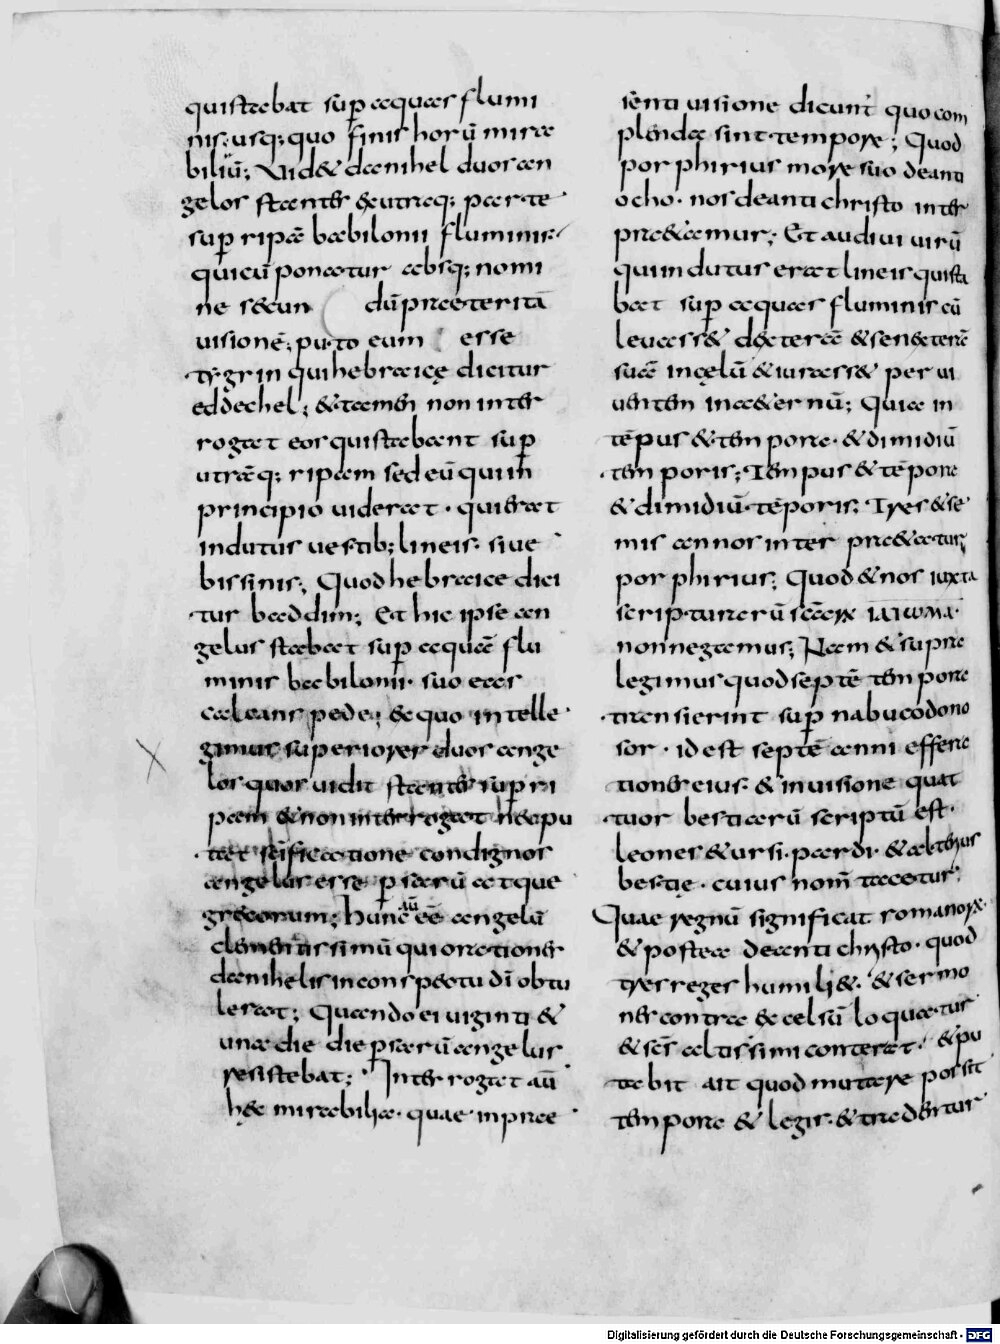 quistabat sup aquas flumi
nis: usq; quo finis horū mira
biliū; Vid& danihel duos an
gelos stantes & utraq; parte
sup ripā babilonii fluminis.
quicū ponatur absq; nomi
ne secun dū praeteritā
visionē; puto eum esse
tygrin qui hebraice dicitur
eddechel; & tamen non inter
rogat eos qui stabant sup
utrāq; ripam sed eū quim
principio viderat. qui erat
indutus vestib; lineis. sive
bissinis; Quod hebraice dici
tur baddim; Et hic ipse an
gelus stabat sup aquā flu
minis babilonii. suo eas
calcans pede; & quo intelle
gimus superiores duos ange
los quos vidit stantes sup ri
pam & non interrogat nea pu
tat scificatione condignos
angelos esse p sarū atque
grecorum; Hunc aū eē angelū
clementissimū qui orationes
danihelis in conspectu dī obtu
lerat; Quando ei viginti &
una die die psarū angelus
resistebat; Interrogat aū
hęc mirabilia. quae in prae
senti visione dicunt quo com
plenda sint tempore; Quod
porphirius more suo de anti
ocho. nos de antichristo inter
pr&amur; Et audivi virū
qui indutus erat lineis qui sta
bat sup aquas fluminis cū
levass& dexterā & senexterā
suā in cęlū & iurass& per vi
ventem in a&ernū; Quia in
tēpus & tempora. & dimidiū
temporis; Tempus & tēpora
& dimidiū. tēporis; Tres & se
mis annos interpr&atur
porphirius; Quod & nos iuxta
scripturarū scāerx ιλιωμα.
non negamus; Nam & supra
legimus quod septē tempora
transierint sup nabucodono
sor. id est septē anni effera
tiones eius. & in visione quat
tuor bestiarū scriptū est.
leones & ursi. pardi. & alterius
bestię. cuius nom̄ tacetur;
Quae regnū significat romanorx.
& postea de anti chrysto. quod
tres reges humili&. & sermo
nes contra excelsū loquatur
& scīs altissimi conterat. & pu
tabit ait quod mutare possit
tempora & legis. & tradentur